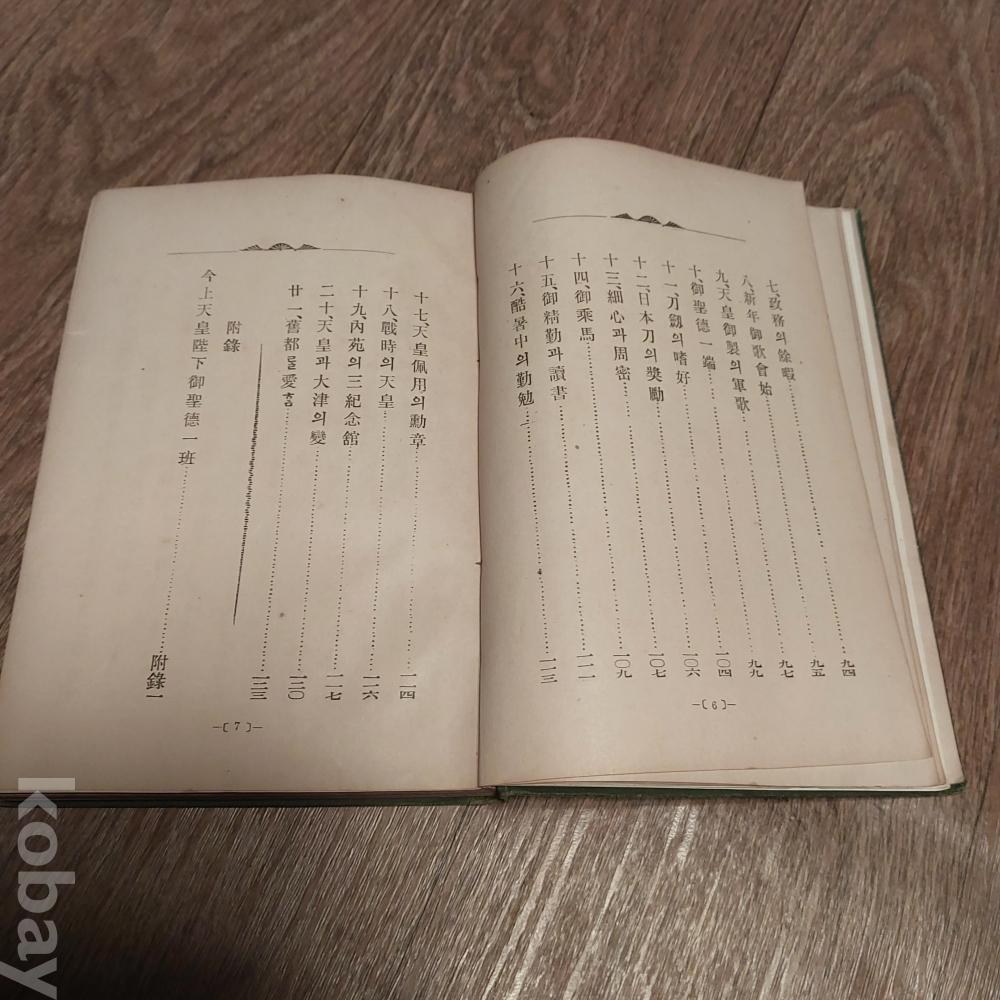 七、政務의餘暇……九四
八、新年御歌會始……九五
九、天皇御製의軍歌……九七
十、御聖德一端……九九
十一、刀劒의嗜好……一〇四
十二、日本刀의奬勵……一〇六
十三、細心과周密……一〇七
十四、御乘馬……一〇九
十五、御精勤과讀書……一一一
十六、酷暑中의勤勉……一一三
—〔6〕—
十七、天皇佩用의勳章……一一四
十八、戰時의天皇……一一六
十九、內苑의三紀念舘……一一七
二十、天皇과大津의變……一二〇
廿一、舊都를愛홈……一二三
附錄
今上天皇陛下御聖德一班……附錄一
—〔7〕—
kobay